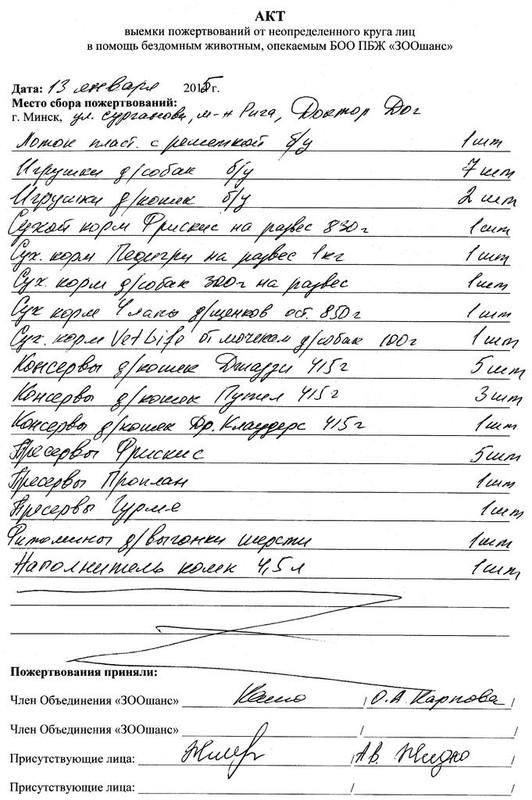 АКТ
выемки пожертвований от неопределенного круга лиц
в помощь бездомным животным, опекаемым БОО ПБЖ «ЗООшанс»
Дата: 13 января 2015 г.
Место сбора пожертвований:
г. Минск, ул. Сурганова, м-н Рига, Доктор Дог
Лоток пласт. с решеткой б/у 1 шт
Игрушки д/собак б/у 7 шт
Игрушки д/кошек б/у 2 шт
Сухой корм Фрискис на развес 830 г 1 шт
Сух. корм Педигри на развес 1 кг 1 шт
Сух. корм д/собак 300 г на развес 1 шт
Сух корм 4 лапы д/щенков ост. 850 г 1 шт
Сух. корм Vet Life от мочекам д/собак 100 г 1 шт
Консервы д/кошек Джаззи 415 г 5 шт
Консервы д/кошек 415 г 3 шт
Консервы д/кошек Др. Клаудерс 415 г 1 шт
Пресервы Фрискис 5 шт
Пресервы Проплан 1 шт
Пресервы Гурмэ 1 шт
Фитомины д/выгонки шерсти 1 шт
Наполнитель комк 4,5 л 1 шт
Пожертвования приняли:
Член Объединения «ЗООшанс» / О.А Карпова /
Член Объединения «ЗООшанс» / /
Присутствующие лица: / А.В. /
Присутствующие лица: / /